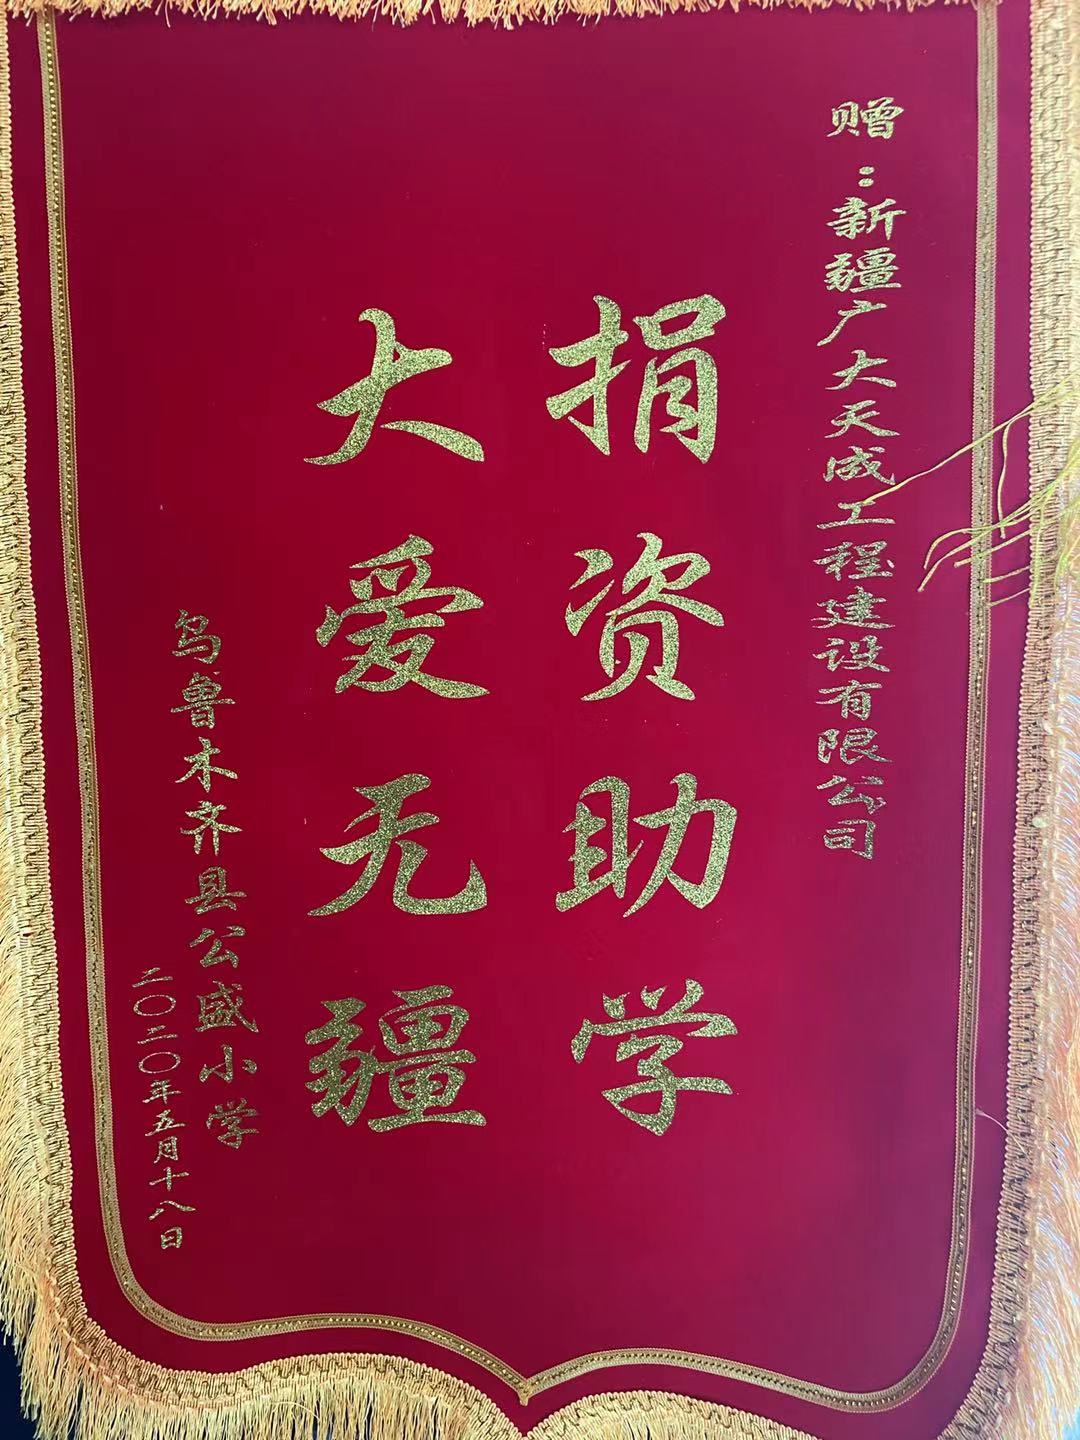 赠：新疆广大天成工程建设有限公司
捐资助学
大爱无疆
乌鲁木齐县公盛小学
二〇二〇年五月十八日